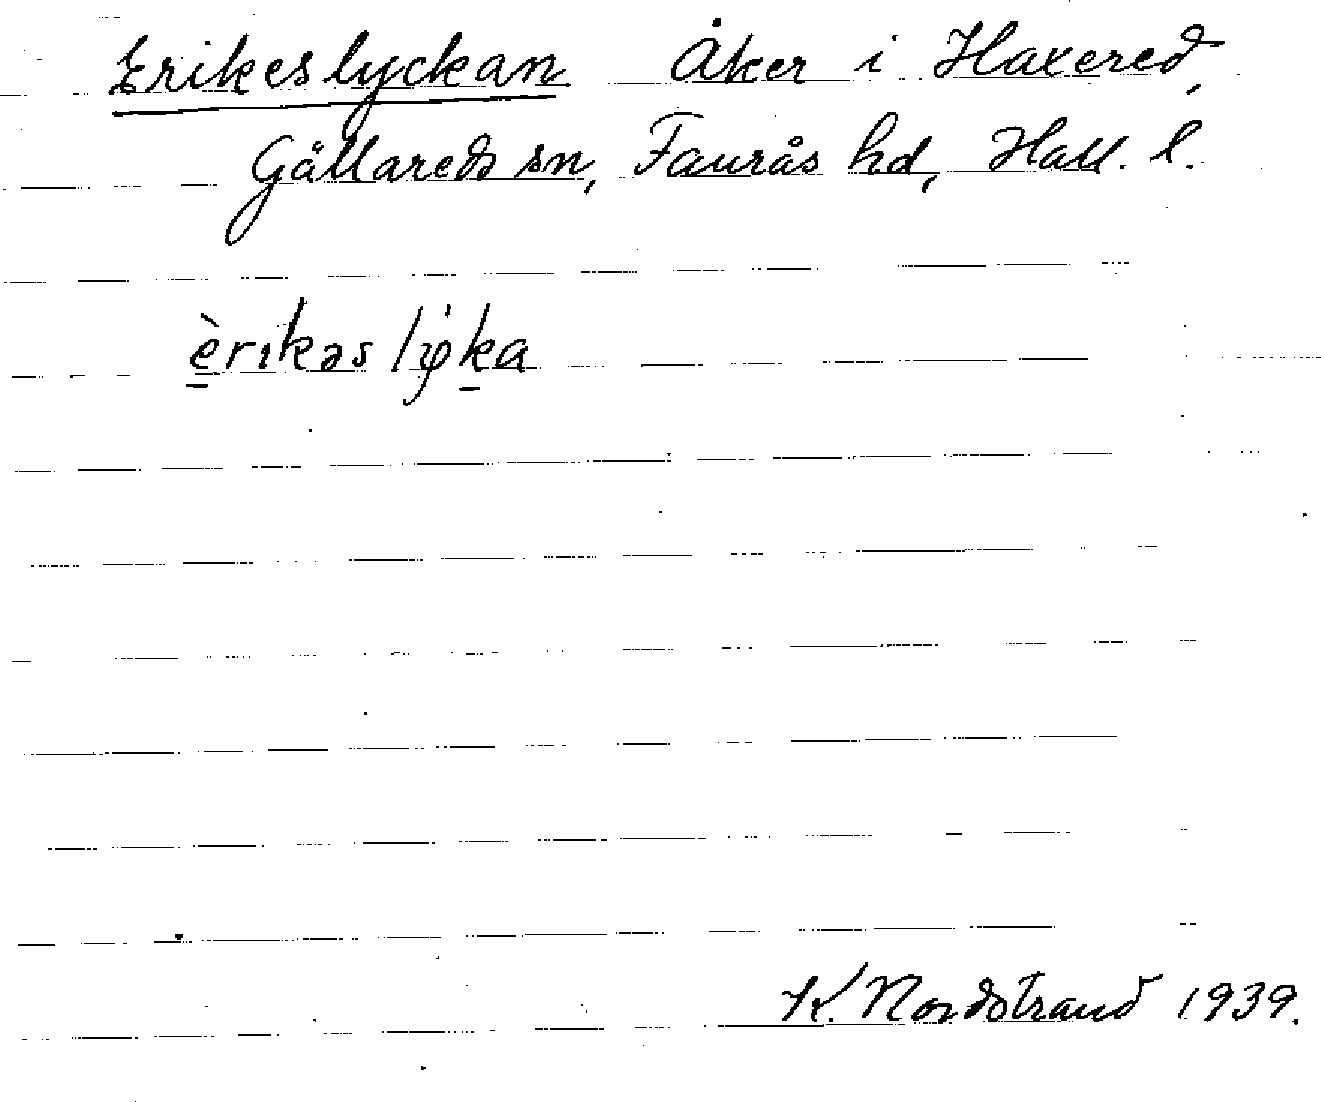 Erikeslyckan Åker i Haxered,
Gällareds sn, Faurås hd, Hall. l.
è̱rıkəs lyka
K. Nordstrand 1939.